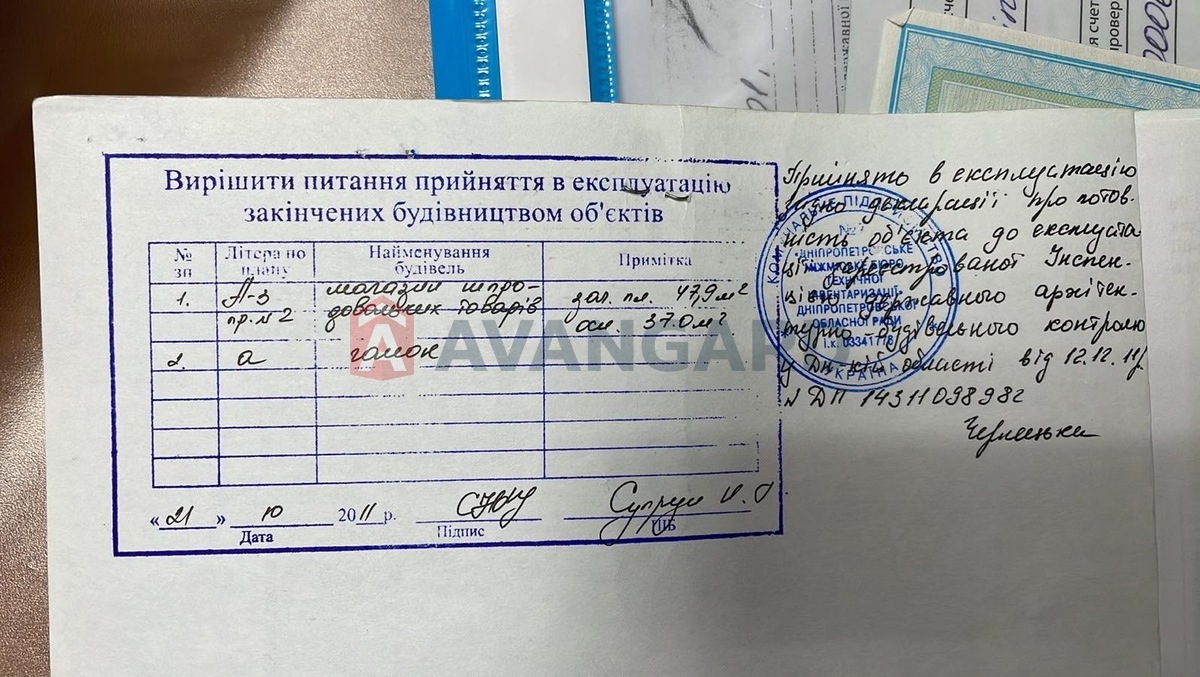 Вирішити питання прийняття в експлуатацію
закінчених будівництвом об'єктів
№ зп
Літера по плану
Найменування будівель
Примітка
1. А-3 магазин непро- заг. пл. 47,9 м²
пр. № 2 довольчих товарів осн. 37.0 м²
2. а ганок
AVANGARD
«21» 10 2011 р. Супрун
Дата Підпис ПІБ
Прийнято в експлуатацію
згідно декларації про готов-
ність об'єкта до експлуата
ції зареєстрованої Інспек-
цією державного архітек-
турно-будівельного контролю
у Дн-кій області від 12.12.11р.
№ ДП 14311098982
КОМУНАЛЬНЕ ПІДПРИЄМСТВО
"ДНІПРОПЕТРОВСЬКЕ
МІЖМІСЬКЕ БЮРО
ТЕХНІЧНОЇ
ІНВЕНТАРИЗАЦІЇ"
ДНІПРОПЕТРОВСЬКОЇ
ОБЛАСНОЇ РАДИ
і.к. 03341778
УКРАЇНА